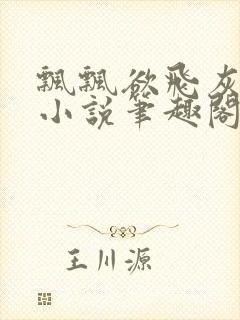 飄飄欲飛灰
小說筆趣閣
王川源